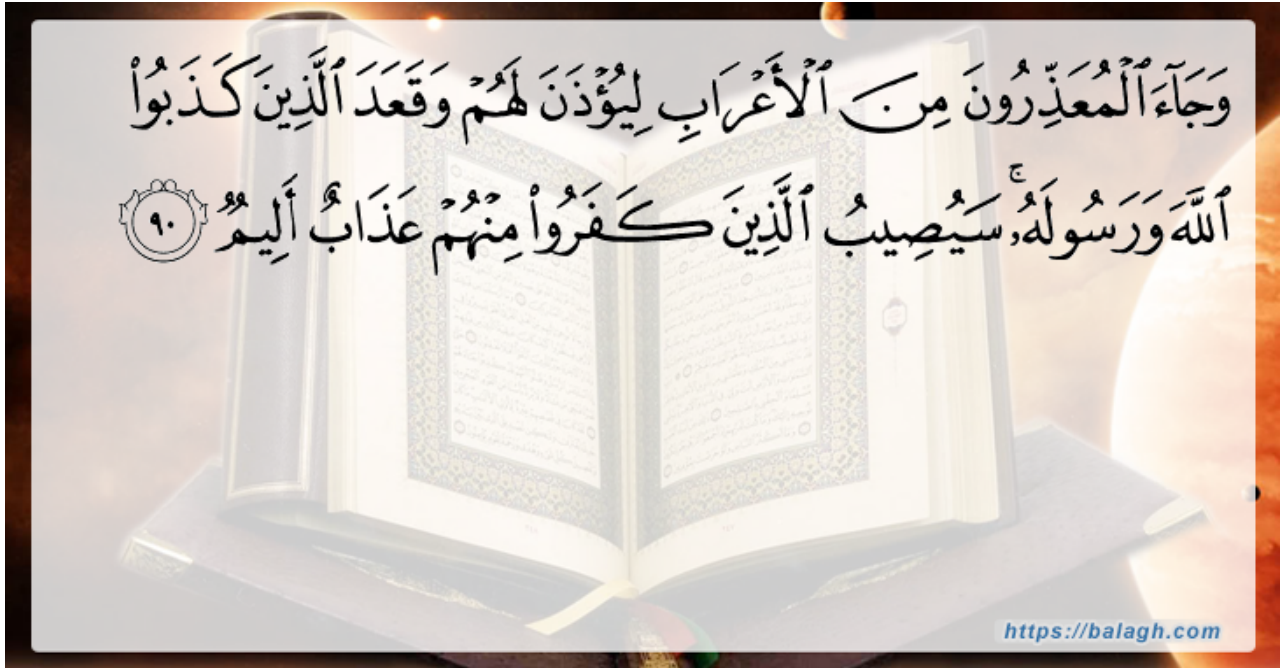 وَجَآءَ ٱلْمُعَذِّرُونَ مِنَ ٱلْأَعْرَابِ لِيُؤْذَنَ لَهُمْ وَقَعَدَ ٱلَّذِينَ كَذَبُوا۟
ٱللَّهَ وَرَسُولَهُۥ ۚ سَيُصِيبُ ٱلَّذِينَ كَفَرُوا۟ مِنْهُمْ عَذَابٌ أَلِيمٌ ٩٠
https://balagh.com